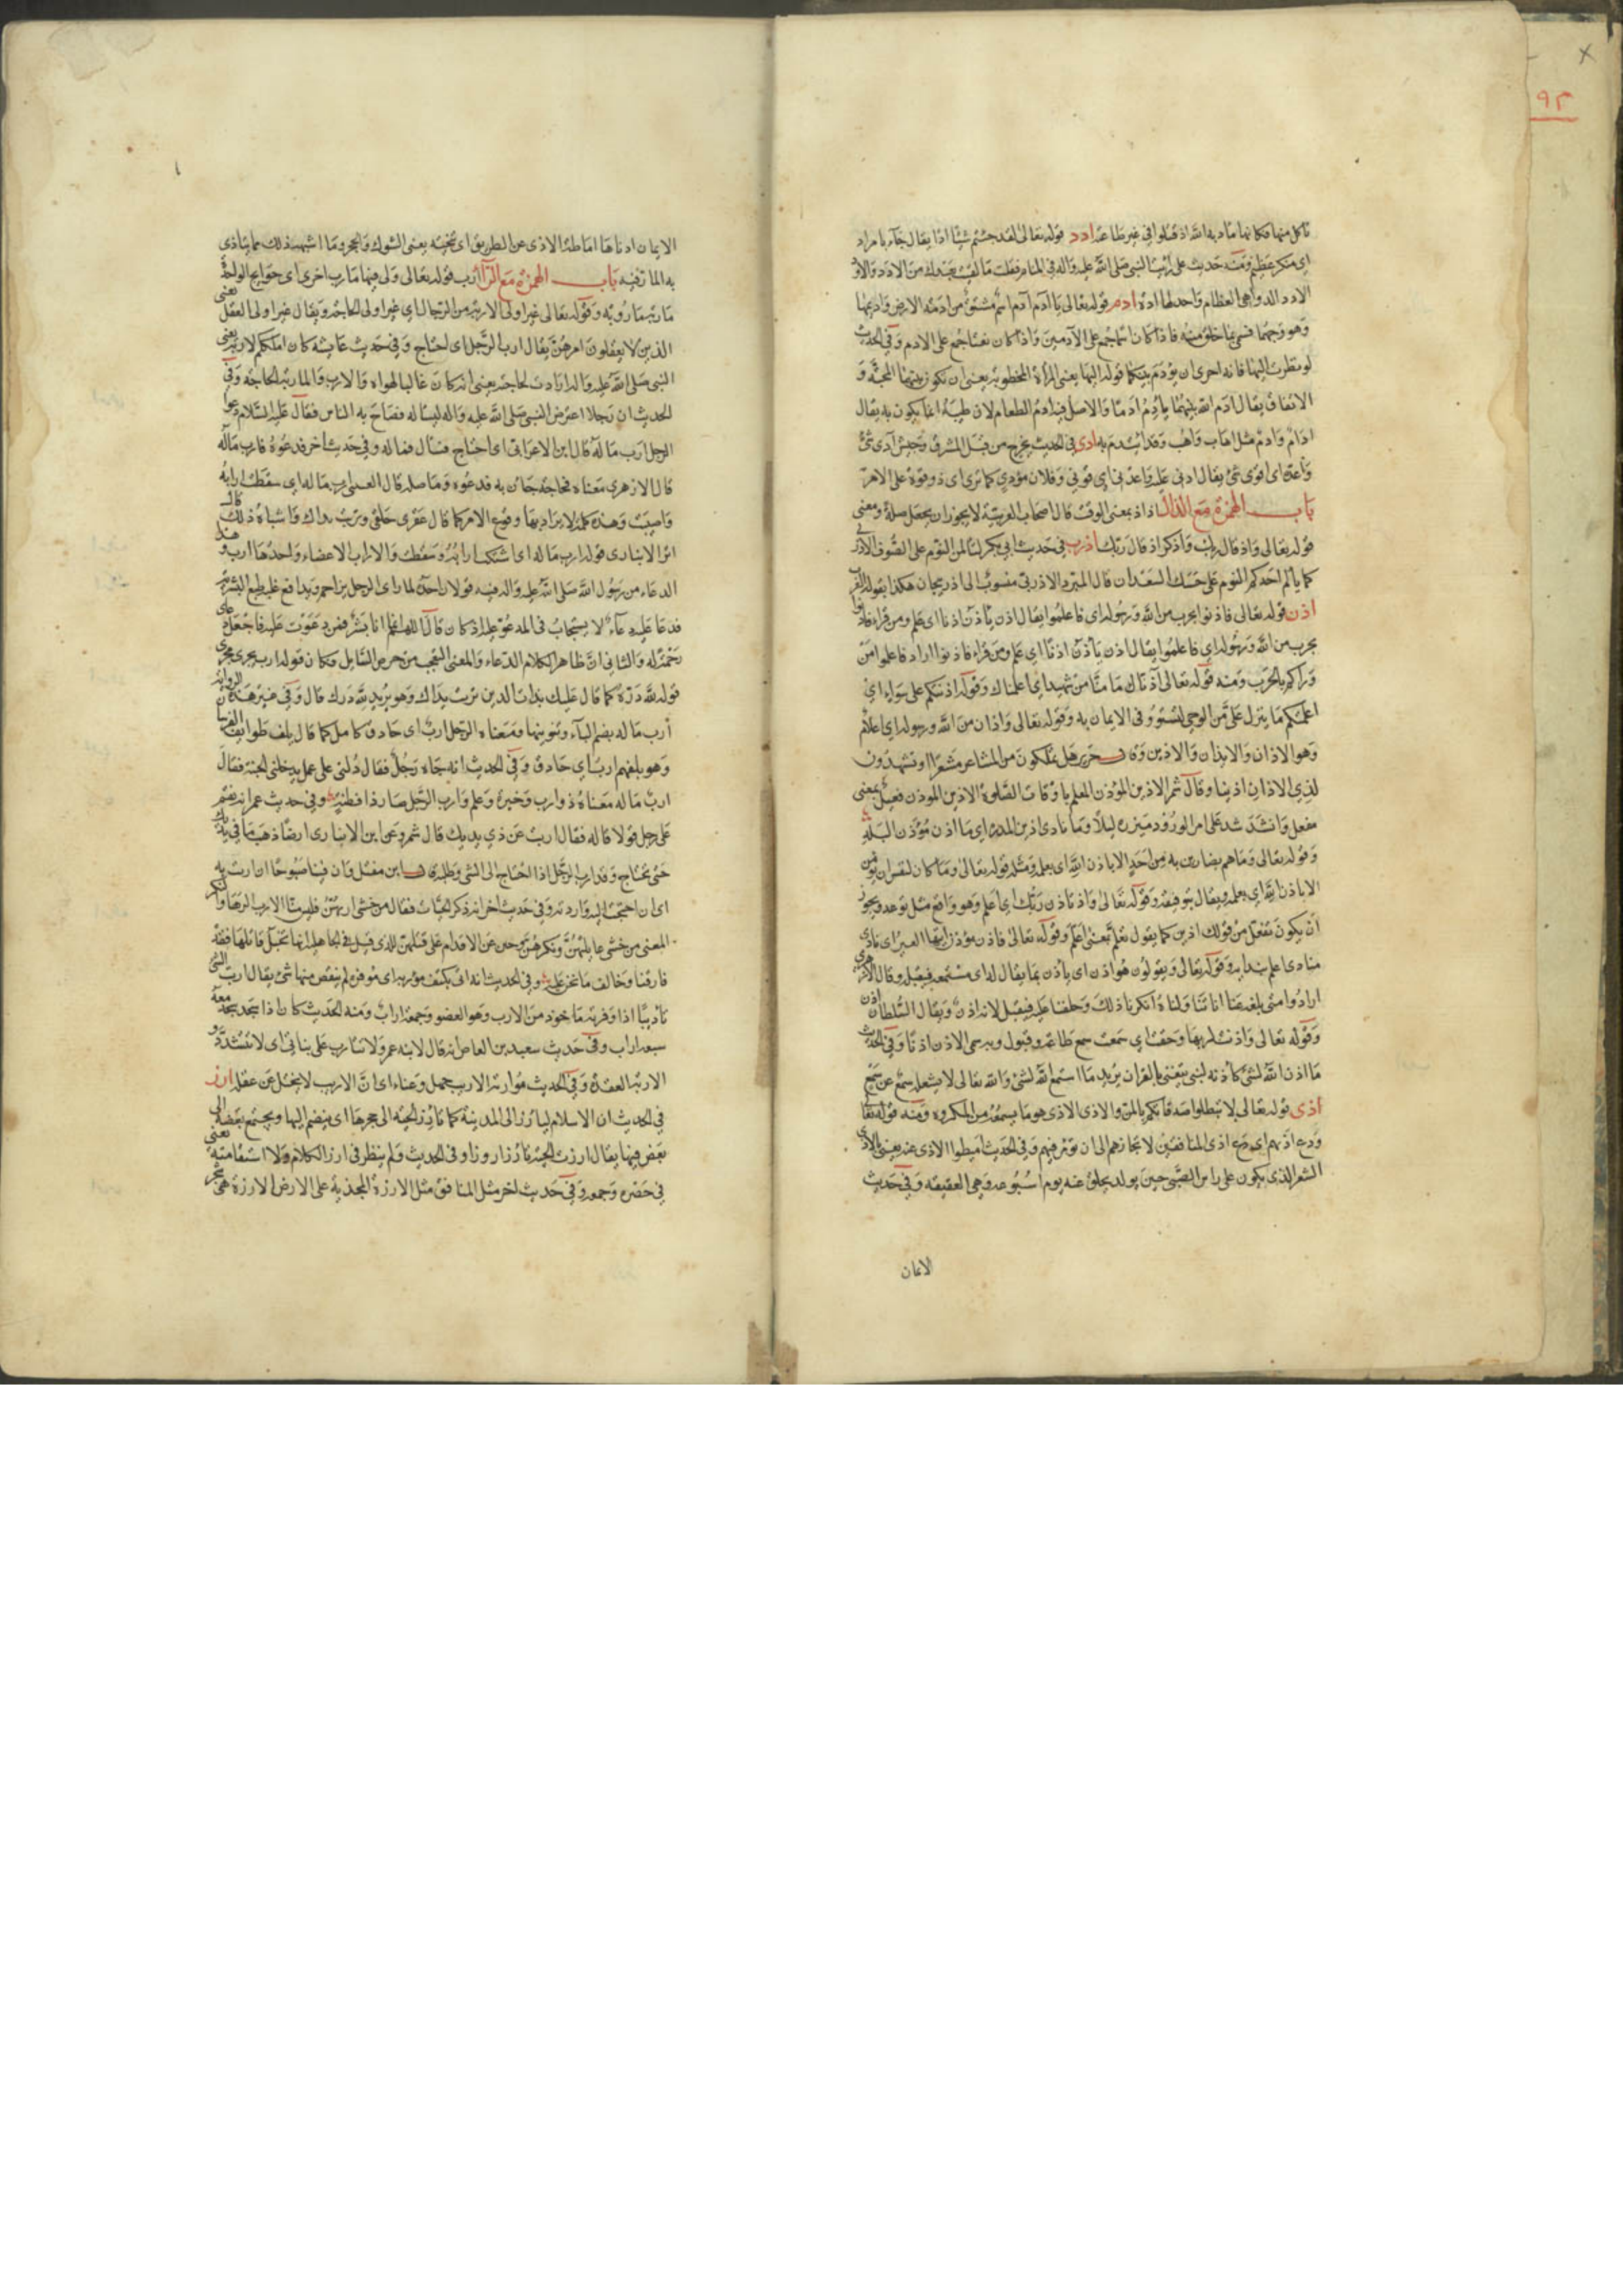 ٩٣
تاكل منها فكانها مادبه الله اذ قتلوا في غير طاعة ادد قوله تعالى لقد جئتم شيئا ادا يقال جاء بامراد
اي منكر عظيم ومنه حديث على رايت النبي صلى الله عليه واله في المنام فقلت ما لقيت بعدك من الادد والاود
الادد الدواهي العظام واحدتها ادة ادم قوله تعالى يا ادم ادم اسم مشتق من ادمة الارض واديمها
وهو وجهها فسمى بما خلق منه فاذا كان اسما جمع على الآدمين واذا كان نعتا جمع على الادم وفي الحديث
لو نظرت اليها فانه احرى ان يؤدم بينكما قوله اليها يعنى المراة المخطوبة يعنى ان تكون بينهما المحبة و
الاتفاق يقال ادم الله بينهما يادم ادما والاصل فيه ادم الطعام لان طيبه انما يكون به يقال
ادام وادم مثل اهاب واهب وقد ائتدم به ادى في الحديث يخرج من قبل المشرق جيش آدى شئ
واعده اى اقوى شئ يقال ادنى عليه واعدنى اى قونى وفلان مؤدي كما ترى اى ذو قوة على الامر
باب الهمزة مع الذال اذ اذ بمعنى الوقت قال اصحاب العربية لا يجوز ان يجعل صلة ومعنى
قوله تعالى واذ قال ربك واذكر اذ قال ربك اذرب في حديث ابي بكر لتالمن النوم على الصوف الاذربى
كما يالم احدكم النوم على حسك السعدان قال المبرد الاذربى منسوب الى اذربيجان هكذا يقوله العرب
اذن قوله تعالى فاذنوا بحرب من الله ورسوله اى فاعلموا يقال اذن ياذن اذنا اى علم ومن قراء فاذنوا
بحرب من الله ورسوله اي فاعلموا يقال اذن ياذن اذنا اى علم ومن قراء فاذنوا اراد فاعلموا من
وراكم بالحرب ومنه قوله تعالى آذناك ما منا من شهيد اي اعلمناك وقوله اذنتكم على سواء اي
اعلمتكم ما ينزل على من الوحى لتستووا في الايمان به وقوله تعالى واذان من الله ورسوله اى اعلام
وهو الاذان والايذان والاذين وقال جرير هل تملكون من المشاعر مشعرا او تشهدون
لذي الاذان اذينا وقال شمر الاذين المؤذن المعلم باوقات الصلوة الاذين الموذن فعيل بمعنى
مفعل وانشد شد على امر الورود ميزره ليلا وما نادى اذين المدره اى ما اذن مؤذن البلد
وقوله تعالى وما هم بضارين به من احد الا باذن الله اى بعلمه ومثله قوله تعالى وما كان لنفس ان تومن
الا باذن الله اي بعلمه ويقال بتوفيقه وقوله تعالى واذ تاذن ربك اى اعلم وهو واقع مثل توعد ويجوز
ان يكون تفعل من قولك اذين كما يقول تعلم بمعنى اعلم وقوله تعالى فاذن مؤذن ايتها العير اى نادى
مناد اعلم بندايه وقوله تعالى ويقولون هو اذن اى ياذن بما يقال له اى مستمعه فيقبل وقال الازهرى
ارادوا متى بلغه عنا انا تناولناه انكرنا ذلك وحلفنا عليه فيقبل لانه اذن ويقال السلطان اذن
وقوله تعالى واذنت لربها وحقت اي سمعت سمع طاعة وقبول وبه سمى الاذن اذنا وفي الحديث
ما اذن الله لشئ كاذنه لنبي يتغنى بالقران يريد ما استمع الله لشئ والله تعالى لا يشغله سمع عن سمع
اذى قوله تعالى لا تبطلوا صدقاتكم بالمن والاذى الاذى هو ما يسمعه من المكروه ومنه قوله تعالى
ودع اذيهم اى دع اذى المنافقين لا تجازهم الى ان تؤمر فيهم وفي الحديث اميطوا الاذى عنه يعنى بالاذى
الشعر الذي يكون على راس الصبى حين يولد يحلق عنه يوم اسبوعه وهي العقيقة وفي حديث
الايمان
الايمان ادناها اماطة الاذى عن الطريق اى تنحيته يعنى الشوك والحجر وما اشبهه ذلك مما يتاذى
به المار فيه باب الهمزة مع الراء ارب قوله تعالى ولى فيها مارب اخرى اى حوايج الواحدة
ماربة وماربة وقوله تعالى غير اولى الاربة من الرجال اي غير اولى الحاجة ويقال غير اولى العقل يعنى
الذين لا يعقلون امرهن يقال ارب الرجل اى احتاج وفي حديث عايشة كان املككم لاربه يعنى
النبى صلى الله عليه واله ارادت لحاجته يعنى انه كان غالبا لهواه والارب والماربة الحاجة وفي
الحديث ان رجلا اعترض النبى صلى الله عليه واله ليساله فصاح به الناس فقال عليه السلام دعوا
الرجل ارب ما له قال ابن الاعرابى اى احتاج فسال فما له وفي حديث اخر فدعوه فارب ماله
قال الازهرى معناه فحاجة جات به فدعوه وما صلة قال القتيبى ارب ما له اى سقطت ارابه
واصيبت وهذه كلمة لا يراد بها وقوع الامر كما قال عقرى حلقى وتربت يداك واشباه ذلك قال
ابن الانبارى قوله ارب ما له اى اشتكت ارابه وسقطت والاراب الاعضاء واحدها ارب وهذا
الدعاء من رسول الله صلى الله عليه واله فيه قولان احده لما راى الرجل يزاحم ويدافع غلبه طبع البشرية
فدعا عليه دعاء لا يستجاب في المدعو عليه اذ كان قال اللهم انما انا بشر فمن دعوت عليه فاجعل دعاى
رحمة له والثانى ان ظاهر الكلام الدعاء والمعنى التعجب من حرص السايل وكان قوله ارب يجرى مجرى
قوله لله دره كما قال عليك بذات الدين تربت يداك وهو يريد لله درك قال وفي غير هذه الرواية ان
ارب ما له بضم الباء وتنوينها ومعناه الرجل ارب اى حاذق كامل كما قال يلف طوايف الفرسا
وهو بلفهم ارب اي حاذق وفي الحديث انه جاء رجل فقال دلنى على عمل يدخلنى الجنة فقال
ارب ما له معناه ذو ارب وخبرة وعلم وارب الرجل صار ذا فطنة وفي حديث عمر انه نقم
على رجل قولا قاله فقال اربت عن ذي يديك قال شمر وعن ابن الانبارى ارضا ذهب ما في يديك
حتى تحتاج وقد ارب الرجل اذا احتاج الى الشى وطلبه قال ابن مقبل وان فينا صبوحا ان اربت به
اى ان احتجت اليه واردته وفي حديث اخر انه ذكر الحيات فقال من خشى اربهن فليس منا الارب الدهاء والنكر
المعنى من خشى غايلتهن ونكرهن وجبن عن الاقدام على قتلهن للذى قيل في الجاهلية انها تخبل قاتلها فقد
فارقنا وخالف ما نحن عليه وفي الحديث انه اتى بكتف مؤربة اى موفرة لم ينقص منها شئ يقال اربت الشئ
تاريبا اذا وفرته ماخوذ من الارب وهو العضو وجمعه اراب ومنه الحديث كان اذا سجد سجد معه
سبعة اراب وفي حديث سعيد بن العاص انه قال لابنه عمرو لا تتارب على بناتى اى لا تتشدد و
الاربة العقدة وفي الحديث مؤاربة الاريب جهل وعناء اى ان الاريب لا يختل عن عقله ارز
في الحديث ان الاسلام ليارز الى المدينة كما تارز الحية الى جحرها اى ينضم اليها ويجتمع بعضه الى
بعض فيها يقال ارزت الحية تارز ارزا وفي الحديث ولم ينظر في ارز الكلام ولا استقامته يعنى
في حصره وجموده وفي حديث اخر مثل المنافق مثل الارزة المجذية على الارض الارزة هى شجر